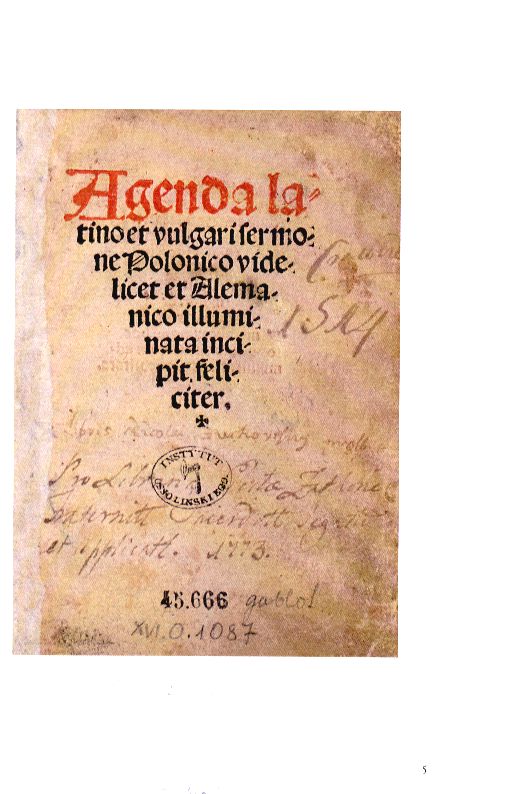 Agenda la⸗
tino et vulgari sermo⸗
ne Polonico vide⸗
licet et Alema⸗
nico illumi⸗
nata inci⸗
pit feli⸗
citer.
✠
1514
INSTYTUT
OSSOLINSKIEGO
Pro
et applicatt. 1773.
45.666 gablo!
XVI.O.1087
5